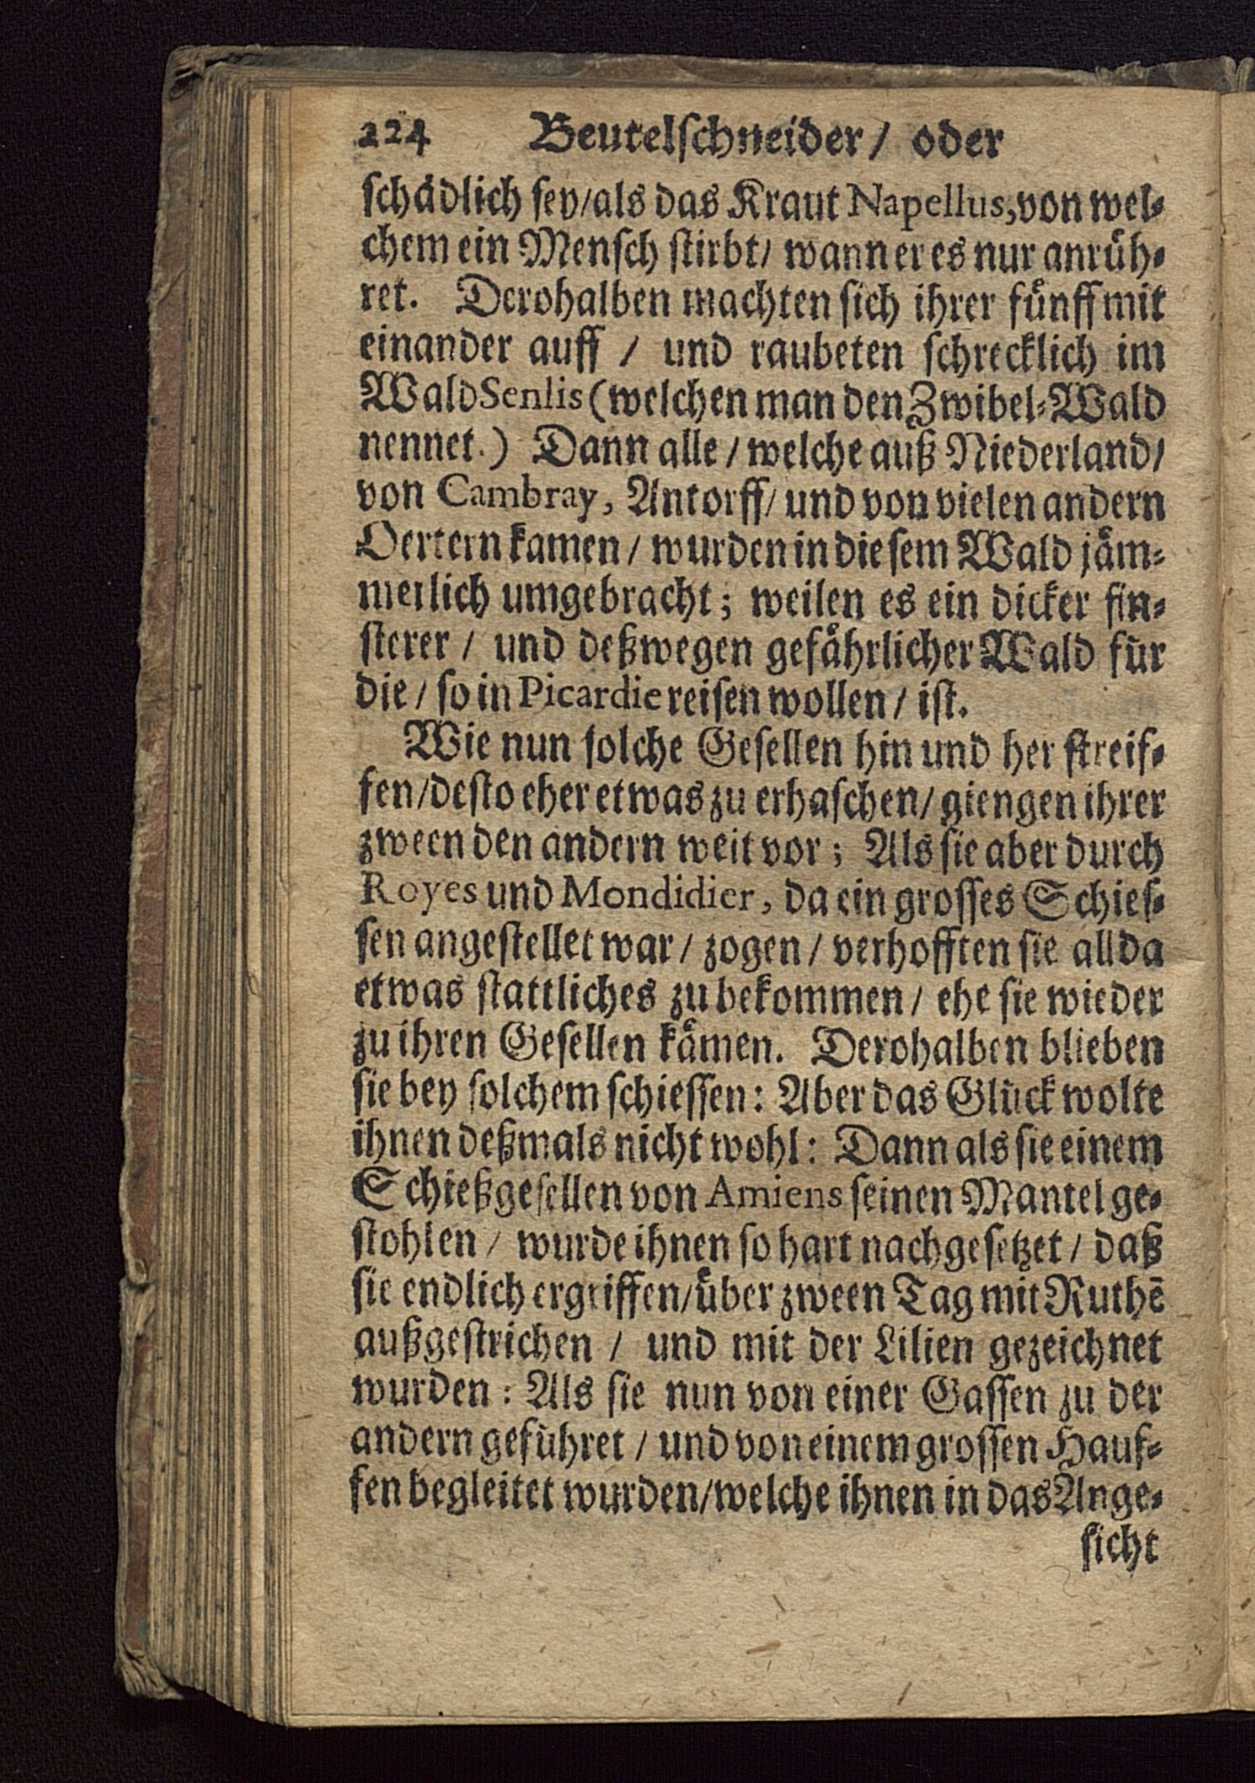 224 Beutelschneider / oder
schädlich sey/als das Kraut Napellus, von wel-
chem ein Mensch stirbt/ wann er es nur anrüh-
ret. Derohalben machten sich ihrer fünff mit
einander auff / und raubeten schrecklich im
Wald Senlis (welchen man den Zwibel-Wald
nennet.) Dann alle / welche auß Niederland/
von Cambray, Antorff/ und von vielen andern
Oertern kamen / wurden in diesem Wald jäm-
merlich umgebracht; weilen es ein dicker fin-
sterer / und deßwegen gefährlicher Wald für
die / so in Picardie reisen wollen / ist.
Wie nun solche Gesellen hin und her streif-
fen/desto eher etwas zu erhaschen/ giengen ihrer
zween den andern weit vor; Als sie aber durch
Royes und Mondidier, da ein grosses Schies-
sen angestellet war / zogen / verhofften sie allda
etwas stattliches zu bekommen / ehe sie wieder
zu ihren Gesellen kämen. Derohalben blieben
sie bey solchem schiessen: Aber das Glück wolte
ihnen deßmals nicht wohl: Dann als sie einem
Schießgesellen von Amiens seinen Mantel ge-
stohlen / wurde ihnen so hart nachgesetzet / daß
sie endlich ergriffen/über zween Tag mit Ruthē
außgestrichen / und mit der Lilien gezeichnet
wurden: Als sie nun von einer Gassen zu der
andern geführet / und von einem grossen Hauf-
fen begleitet wurden/welche ihnen in das Ange-
sicht